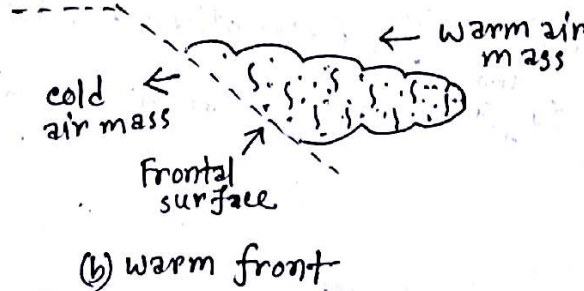 warm air
mass
cold
air mass
Frontal
surface
(b) warm front